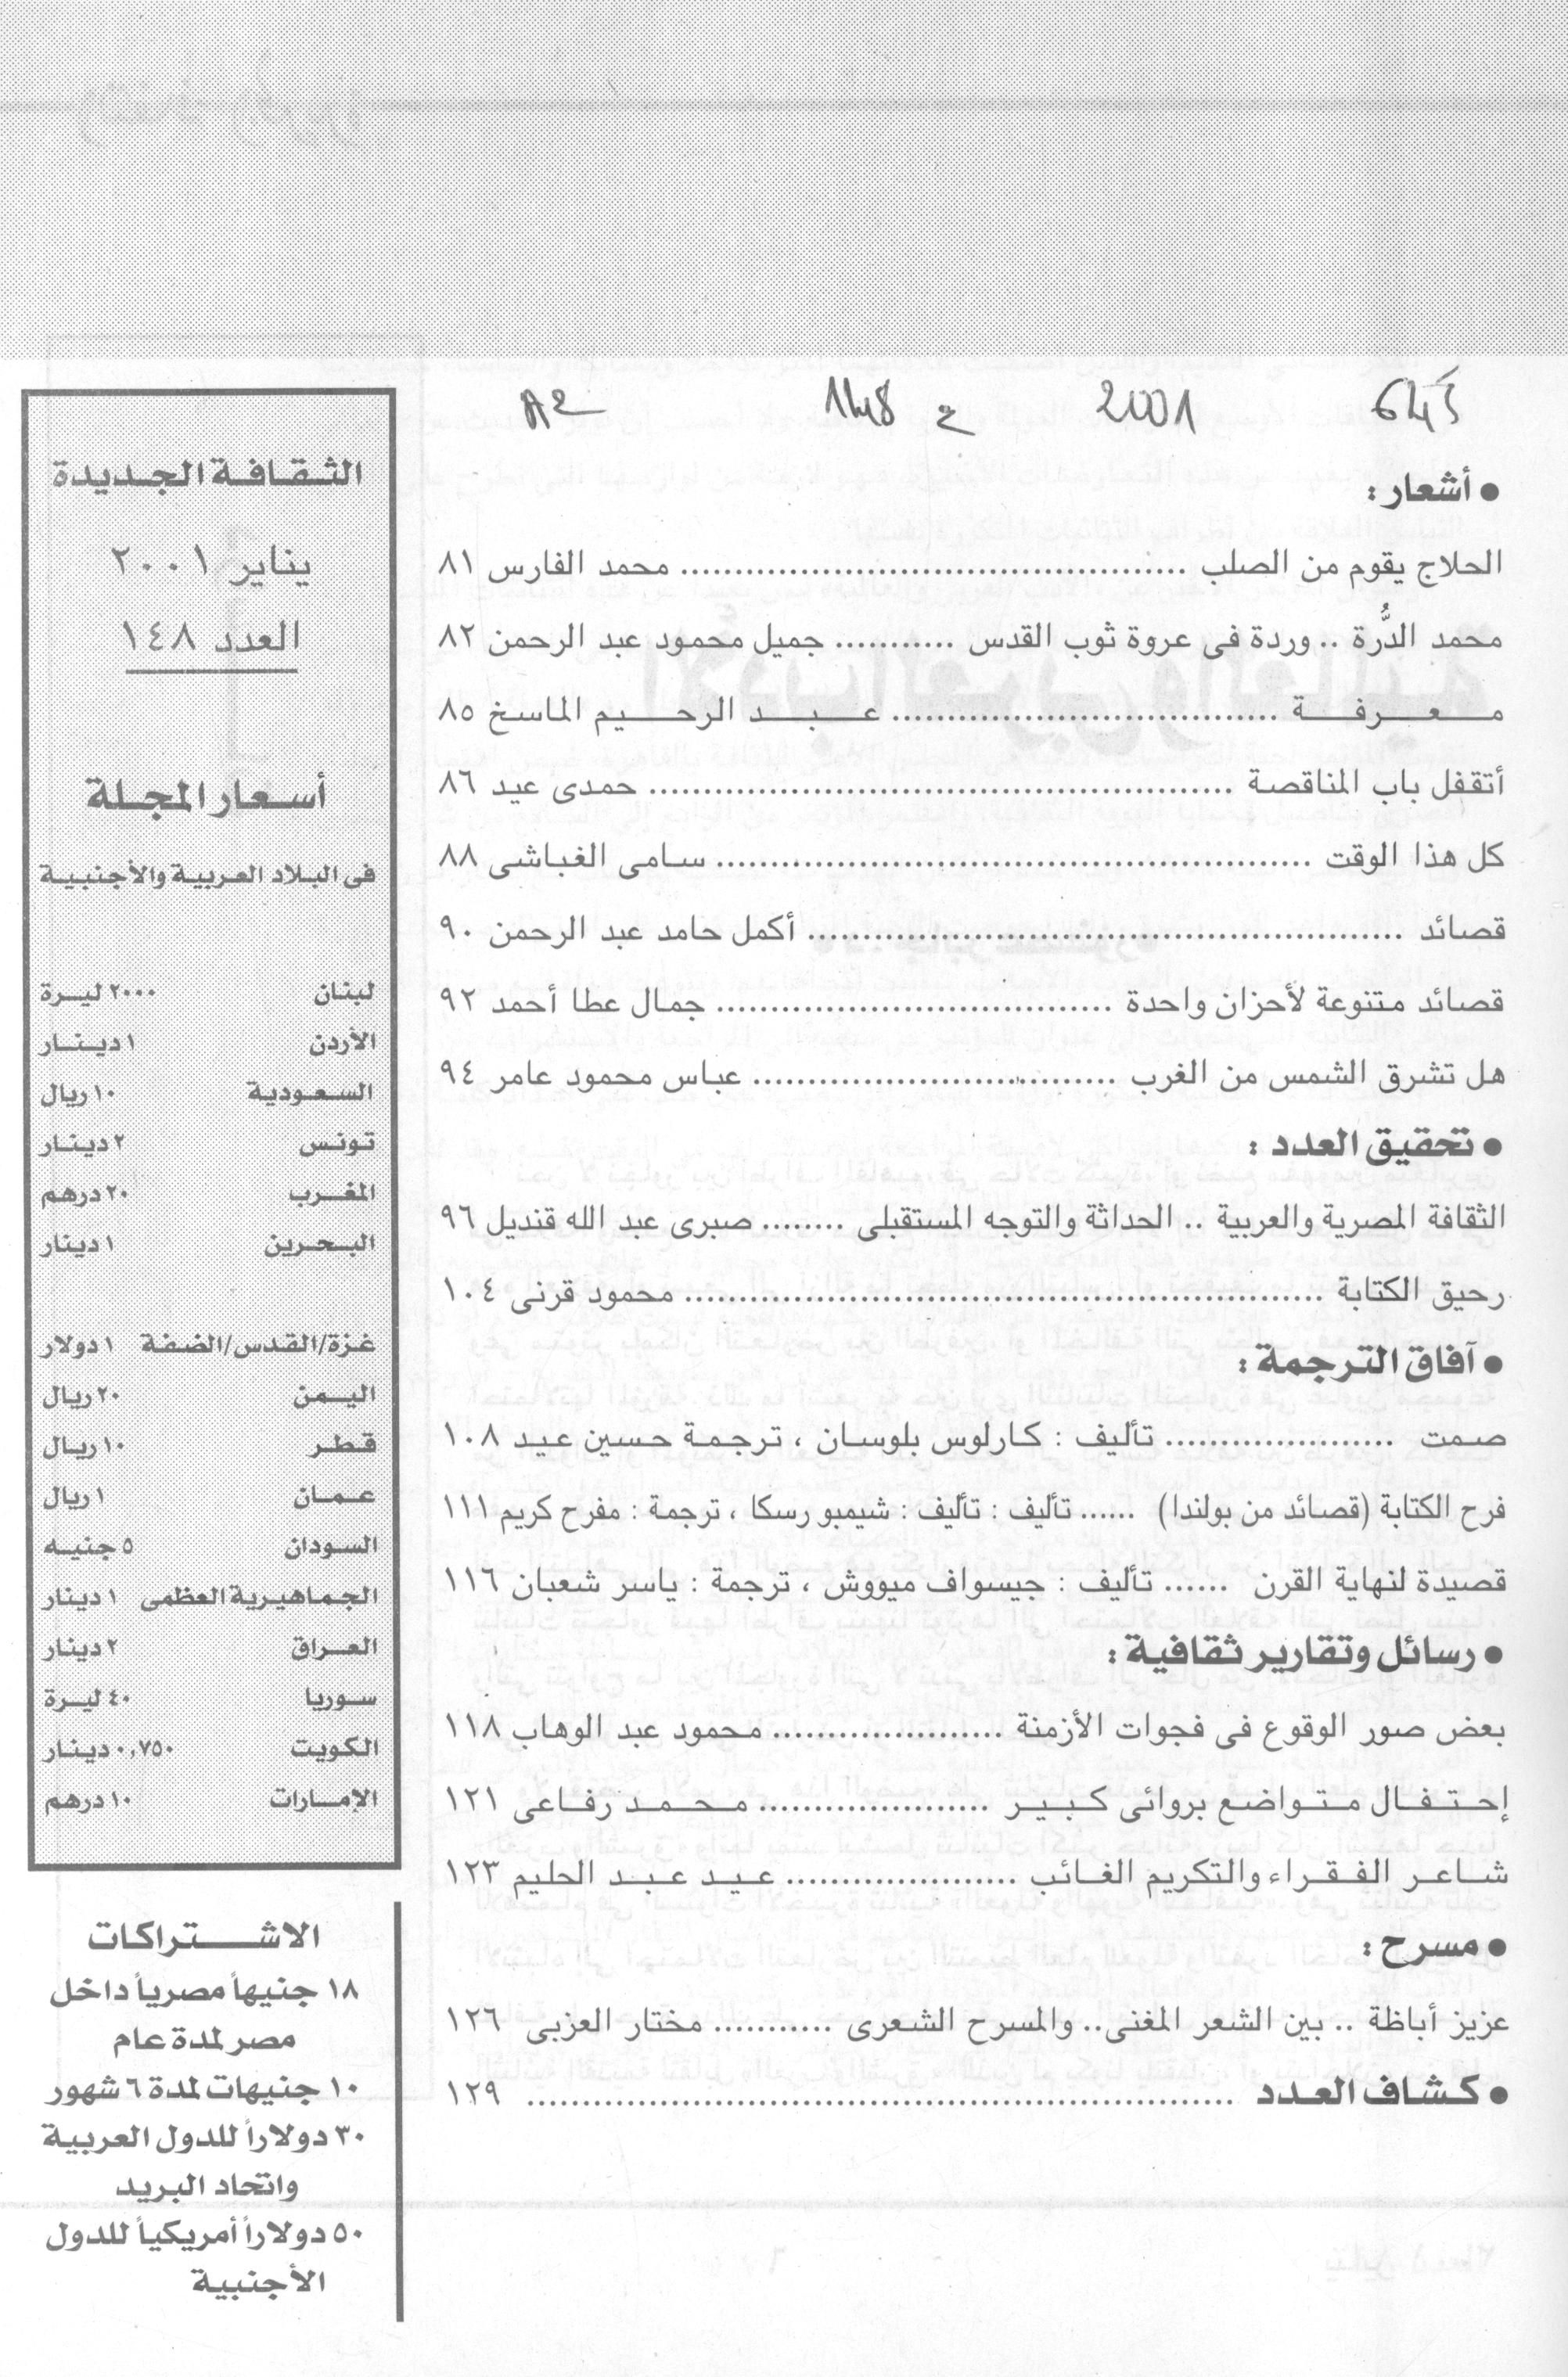 A2 148 ع 2001
• أشعار :
الحلاج يقوم من الصلب ........ محمد الفارس ٨١
محمد الدُّرة .. وردة فى عروة ثوب القدس ........ جميل محمود عبد الرحمن ٨٢
معرفة ........ عبد الرحيم الماسخ ٨٥
أتقفل باب المناقصة ........ حمدى عيد ٨٦
كل هذا الوقت ........ سامى الغباشى ٨٨
قصائد ........ أكمل حامد عبد الرحمن ٩٠
قصائد متنوعة لأحزان واحدة ........ جمال عطا أحمد ٩٢
هل تشرق الشمس من الغرب ........ عباس محمود عامر ٩٤
• تحقيق العدد :
الثقافة المصرية والعربية .. الحداثة والتوجه المستقبلى ........ صبرى عبد الله قنديل ٩٦
رحيق الكتابة ........ محمود قرنى ١٠٤
• آفاق الترجمة :
صمت ........ تأليف : كارلوس بلوسان ، ترجمة حسين عيد ١٠٨
فرح الكتابة (قصائد من بولندا) ...... تأليف : تأليف : شيمبو رسكا ، ترجمة : مفرح كريم ١١١
قصيدة لنهاية القرن ...... تأليف : جيسواف ميووش ، ترجمة : ياسر شعبان ١١٦
• رسائل وتقارير ثقافية :
بعض صور الوقوع فى فجوات الأزمنة ........ محمود عبد الوهاب ١١٨
إحتفال متواضع بروائى كبير ........ محمد رفاعى ١٢١
شاعر الفقراء والتكريم الغائب ........ عيد عبد الحليم ١٢٣
• مسرح :
عزيز أباظة .. بين الشعر المغنى.. والمسرح الشعرى ........ مختار العزبى ١٢٦
• كشاف العدد ........ ١٢٩
الثقافة الجديدة
يناير ٢٠٠١
العدد ١٤٨
أسعار المجلة
فى البلاد العربية والأجنبية
لبنان ٢٠٠٠ ليرة
الأردن ١ دينار
السعودية ١٠ ريال
تونس ٢ دينار
المغرب ٢٠ درهم
البحرين ١ دينار
غزة/القدس/الضفة ١ دولار
اليمن ٢٠ ريال
قطر ١٠ ريال
عمان ١ ريال
السودان ٥ جنيه
الجماهيرية العظمى ١ دينار
العراق ٢ دينار
سوريا ٤٠ ليرة
الكويت ٠,٧٥٠ دينار
الإمارات ١٠ درهم
الاشتراكات
١٨ جنيهاً مصرياً داخل
مصر لمدة عام
١٠ جنيهات لمدة ٦ شهور
٣٠ دولاراً للدول العربية
واتحاد البريد
٥٠ دولاراً أمريكياً للدول
الأجنبية